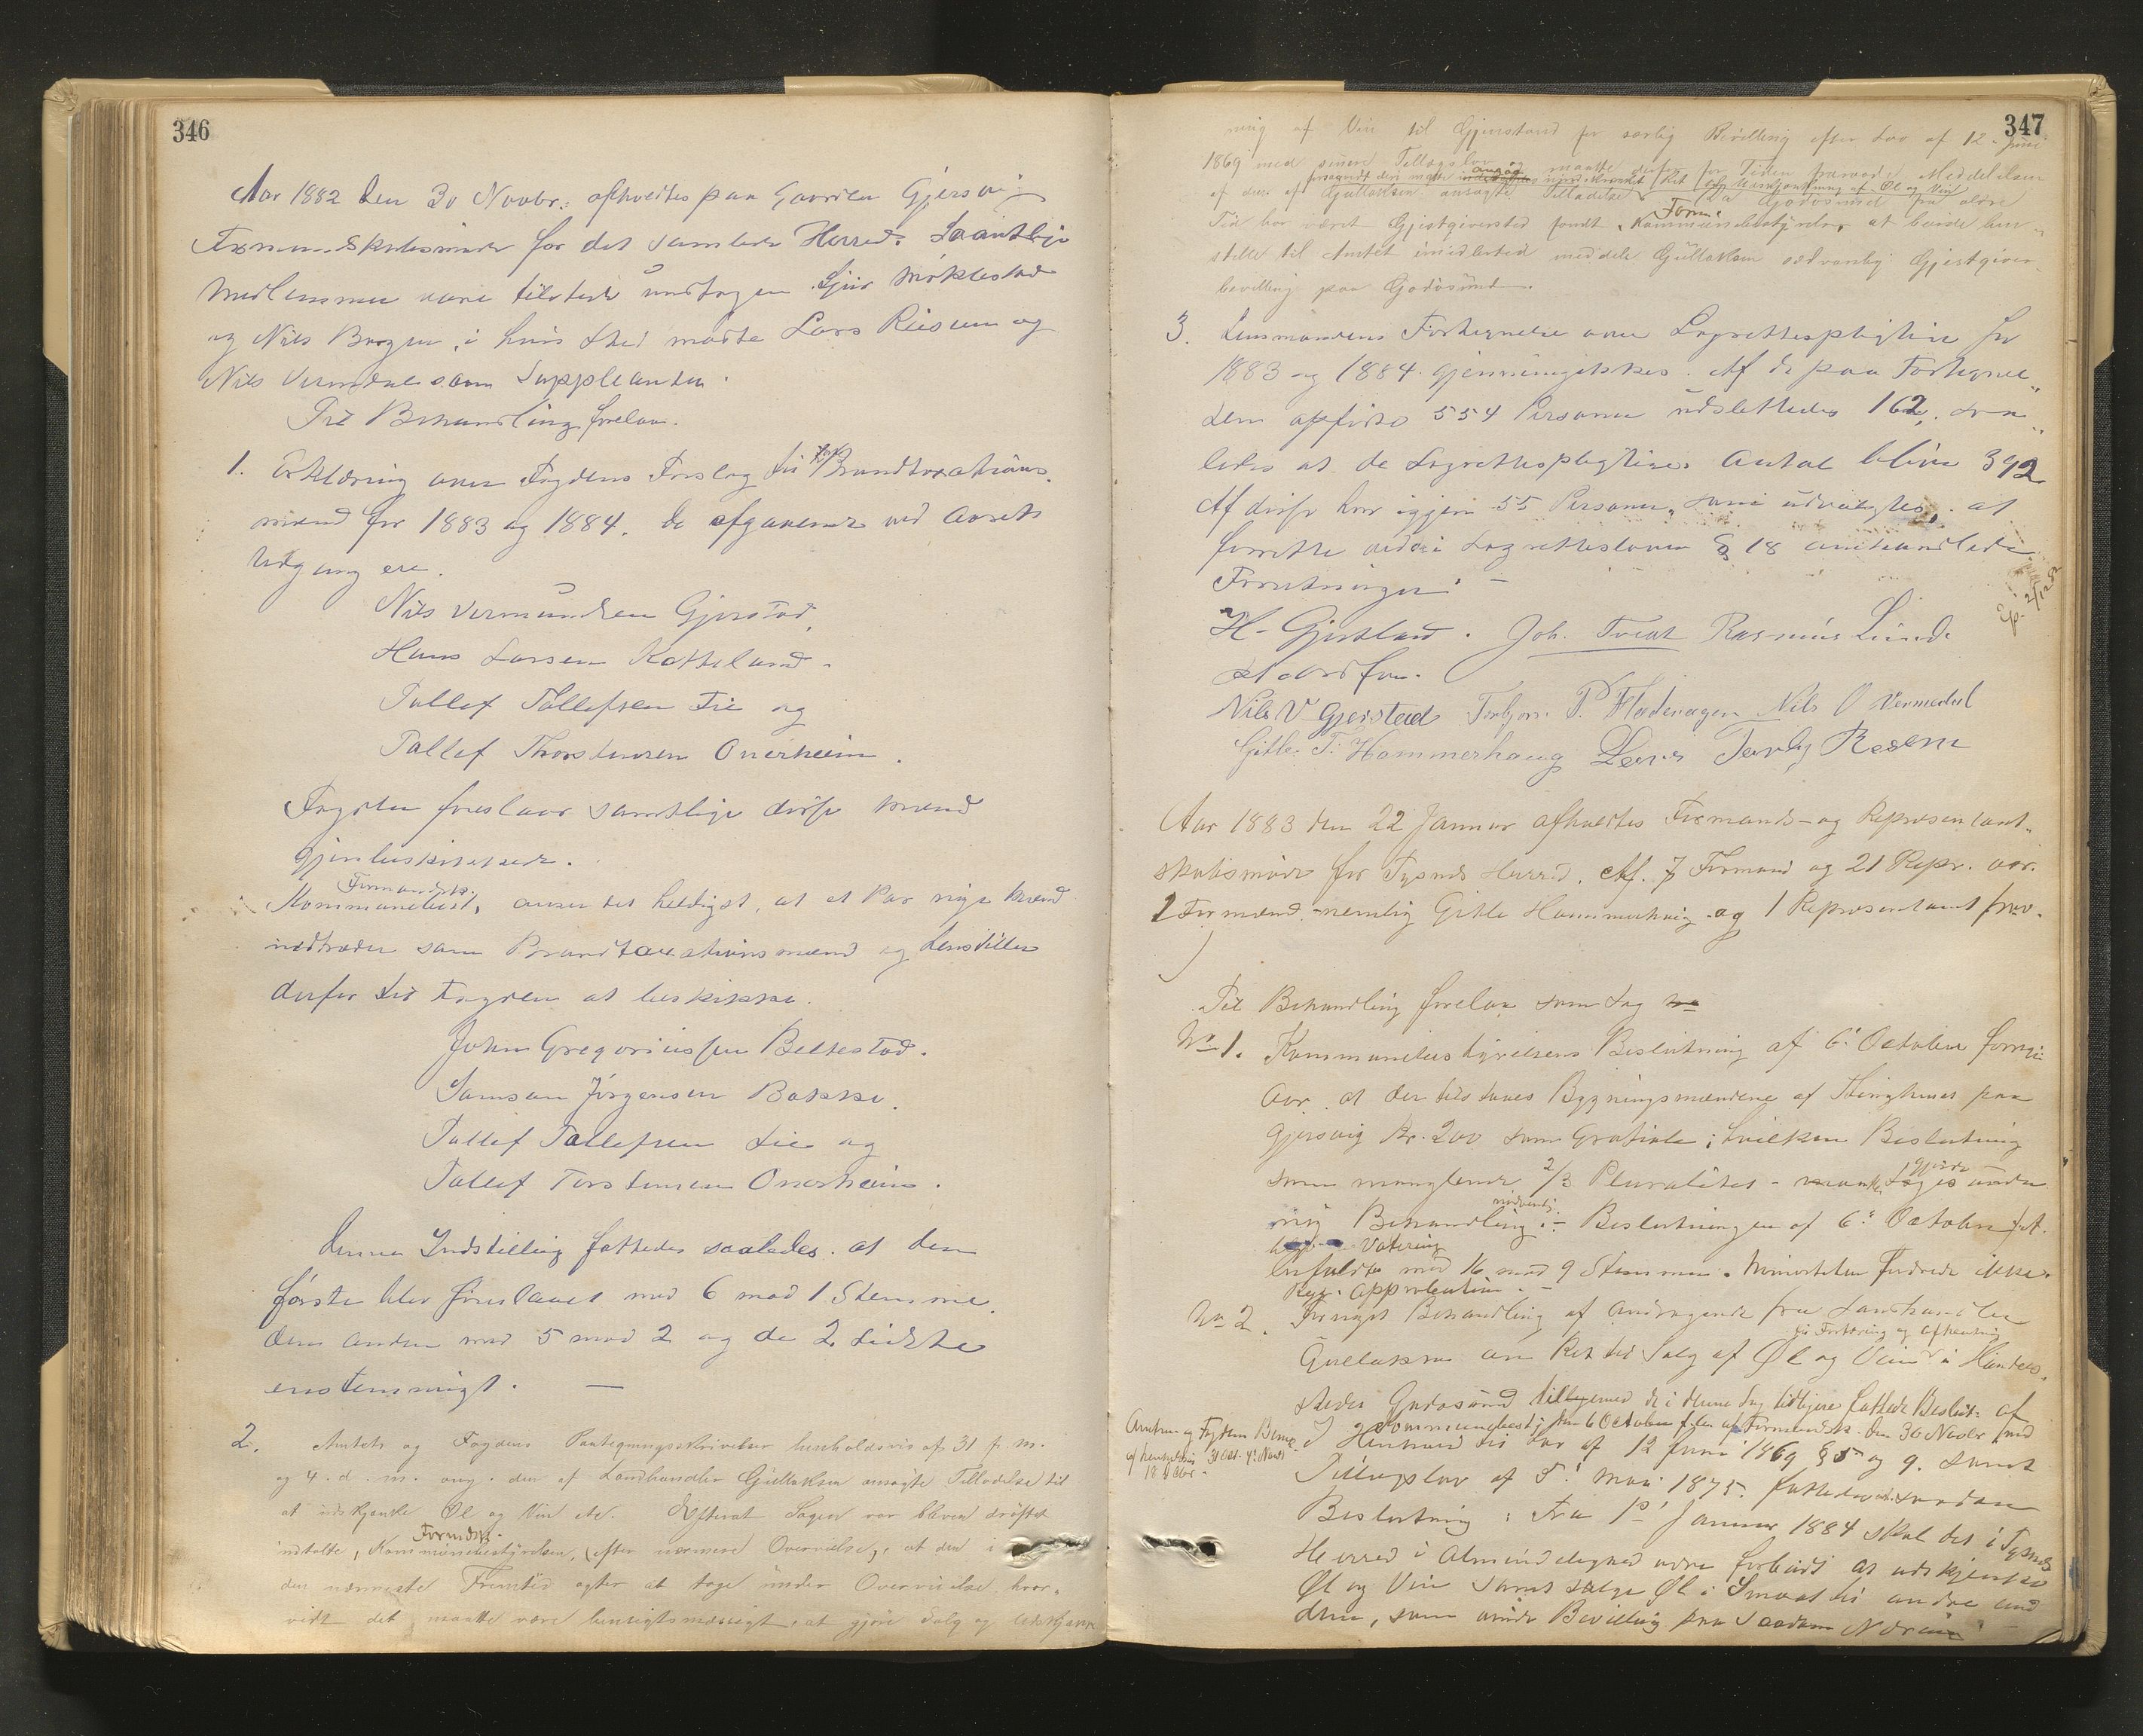 346
Aar 1882 den 30 Novbr: afholdtes paa Gaarden Gjersvig
Formandskabsmøde for det samlede Herred. Samtlige
Medlemmer vare tilstede undtagen Sjur Møklestad
og Nils Bruger, i hvis Sted mødte Lars Risum og
Nils Vermedal som Suppleanter.
Til Behandling forelaa.
1. Erklæring over Fogdens Forslag til Brandtaxations-
mænd for 1883 og 1884. De afgaaende ved Aarets
Udgang ere.
Nils Vermundsen Gjerstad,
Hans Larsen Kotteland.
Tollef Tollefsen Lie og
Tollef Thorstensen Onerheim.
Fogden foreslaar samtlige disse Mænd
gjenbeskikkede.
Formandsk.
Kommunebest, anser det heldigst, at et Par nye Mænd
indtræder som Brandtaxationsmænd og henstiller
derfor til Fogden at beskikke.
John Gregoriussen Beltestad.
Samson Jørgensen Bakke.
Tollef Tollefsen Lie og
Tollef Torstensen Onerheim.
Denne Indstilling fattedes saaledes. at den
første blev foreslaaet med 6 mod 1 Stemme.
den anden med 5 mod 2 og de 2 sidste
enstemmigt. —
2. Amtets og Fogdens Paategningsskrivelser henholdsvis af 31 f. m.
og 4. d. m. ang. den af Landhandler Gullaksen ansøgte Tilladelse til
at udskjænke Øl og Vin etc. Efterat Sagen var bleven drøftet
Formdsk.
udtalte, Kommunebestyrelsen, efter nærmere Overveielse, at den i
den nærmeste Fremtid agter at tage under Overveielse, hvor-
vidt det maatte være hensigtsmæssigt, at gjøre Salg og Udskjænk-
347
ning af Vin til Gjenstand for særlig Bevilling efter Lov af 12. Juni
1869 med senere Tillægslov og maatte derfor for Tiden fraraade Meddelelsen
af den af Gullaksen ansøgte Tilladelse
af Udskjænkning af Øl og Vin
Da Godøsund fra ældre
Tid har været Gjestgiversted fandt Kommunebestyrelsen at burde hen-
Form:
stille til Amtet imidlertid meddele Gullaksen sædvanlig Gjestgiver-
bevilling paa Godøsund.
3. Lensmandens Fortegnelse over Lagrettespligtige for
1883 og 1884 gjennemgikkes. Af de paa Fortegnel-
sen opførte 554 Personer udslettedes 162, saa-
ledes at de Lagrettespligtiges Antal bliver 392
Af disse har igjen 55 Personer, som udvalgtes, at
forrette ved de i Lagretteslovens § 18 omhandlede
Forretninger. —
Ex. 2/12 82
H. Gjerstad. Joh. Tveit Rasmus Lunde
Nils V Gjerstad Torbjørn P. Flødevagen Nils O Vermedal
Gitle T. Hammerhaug Lars Torbj Resem
Aar 1883 den 22 Januar afholdtes Formands- og Repræsentant-
skabsmøde for Tysnæs Herred. Af 7 Formænd og 21 Repr. var
1 Formænd nemlig Gitle Hammerhaug og 1 Repræsentant frav.
Til Behandling forelaa som Sag
No 1. Kommunebestyrelsens Beslutning af 6te October forrige
Aar at der tilstaaes Bygningsmændene af Thinghuset paa
Gjersvig Kr. 200 som Gratiale; hvilken Beslutning
som manglende 2/3 Pluralitet gjorde
ny Behandling nødvendig. – Beslutningen af 6te October
Votering
med 16 mod 9 Stemmer. Minoriteten fordrede ikke
Reg. Approbation. —
No 2. Fornyet Behandling af Andragende fra Landhandler
til Fortæring og Afhentning
Gullaksen om Ret til Salg af Øl og Vin i Handels-
stedet Godøsund tilligemed de i denne Sag tidligere fattede Beslut: af
Kommunebest; den 6 October f. A. af Formandsk. den 30 Novbr
Amtets og Fogdens Bemærk
af henholdsvis 31 Oct. 4. Novbr
18 Decbr.
I Henhold til Lov af 12 Juni 1869 § 5 og 9. samt
Tillægslov af 5te Mai 1875 fattedes saadan
Beslutning: Fra 1ste Januar 1884 skal det i Tysnæs
Herred i Almindelighed være forbudt at udskjænke
Øl og Vin samt sælge Øl i Smaat til andre end
dem, som erholde Bevilling paa saadan Næring